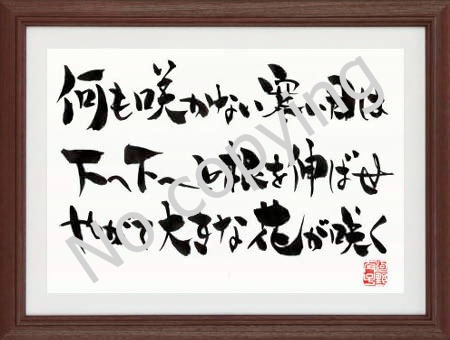 何も咲かない寒い日は
下へ下へと根を伸ばせ
やがて大きな花が咲く
No copying